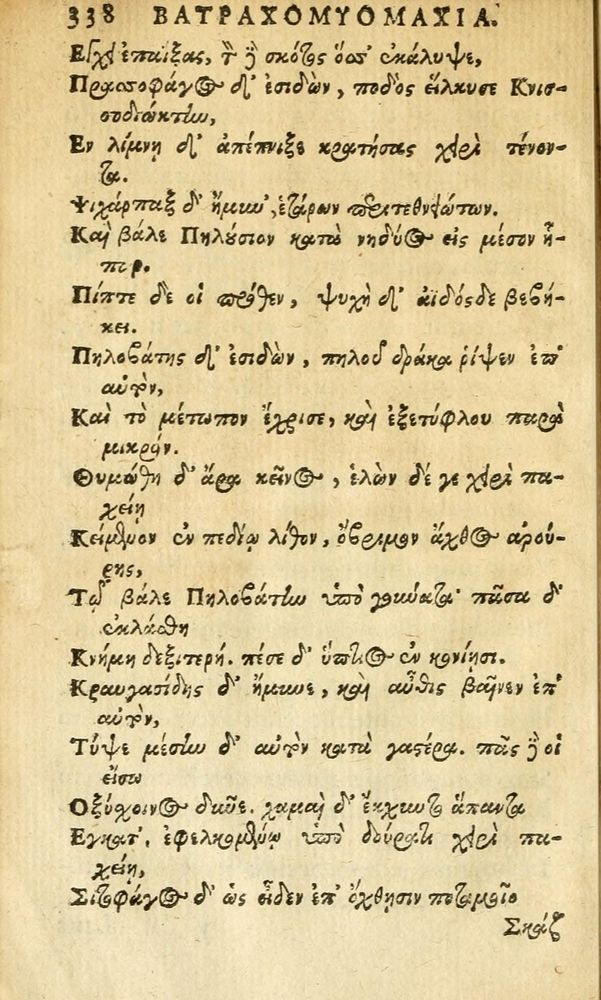 338 ΒΑΤΡΑΧΟΜΥΟΜΑΧΙΑ.
Εσχ' ἐπαΐξας, τ̀ ϳ̀ σκότος ὄσσ' ἐκάλυψε,
Πρασσοφάγος δ' ἐσιδὼν, ποδὸς εἵλκυσε Κνισ-
σοδιώκτην,
Εν λίμνῃ δ' ἀπέπνιξε κρατήσας χειρὶ τένον-
τα.
Ψιχάρπαξ δ' ἤμυν' ἑτάρων περὶ τεθνειώτων.
Καὶ βάλε Πηλούσιον κατὰ νηδύος εἰς μέσον ἧ-
παρ.
Πίπτε δέ οἱ πρόθεν, ψυχὴ δ' ἀϊδόσδε βεβή-
κει.
Πηλοβάτης δ' ἐσιδὼν, πηλοῦ δράκα ῥίψεν ἐπ'
αὐτὸν,
Καὶ τὸ μέτωπον ἔχρισε, καὶ ἐξετύφλου παρὰ
μικρόν.
Θυμώθη δ' ἄρα κεῖνος, ἑλὼν δέ γε χειρὶ πα-
χείῃ
Κείμενον ἐν πεδίῳ λίθον, ὄβριμον ἄχθος ἀρού-
ρης,
Τῷ βάλε Πηλοβάτην ὑπὸ γούνατα· πᾶσα δ'
ἐκλάσθη
Κνήμη δεξιτερή. πέσε δ' ὕπτιος ἐν κονίῃσι.
Κραυγασίδης δ' ἤμυνε, καὶ αὖθις βαῖνεν ἐπ'
αὐτὸν,
Τύψε μέσην δ' αὐτὸν κατὰ γαστέρα. πᾶς δέ οἱ
εἴσω
Οξύσχοινος δῦνε. χαμαὶ δ' ἔκχυντο ἅπαντα
Εγκατ', ἐφελκομένῳ ὑπὸ δούρατι χειρὶ πα-
χείῃ,
Σιτοφάγος δ' ὡς εἶδεν ἐπ' ὄχθῃσιν ποταμοῖο
Σκάζ